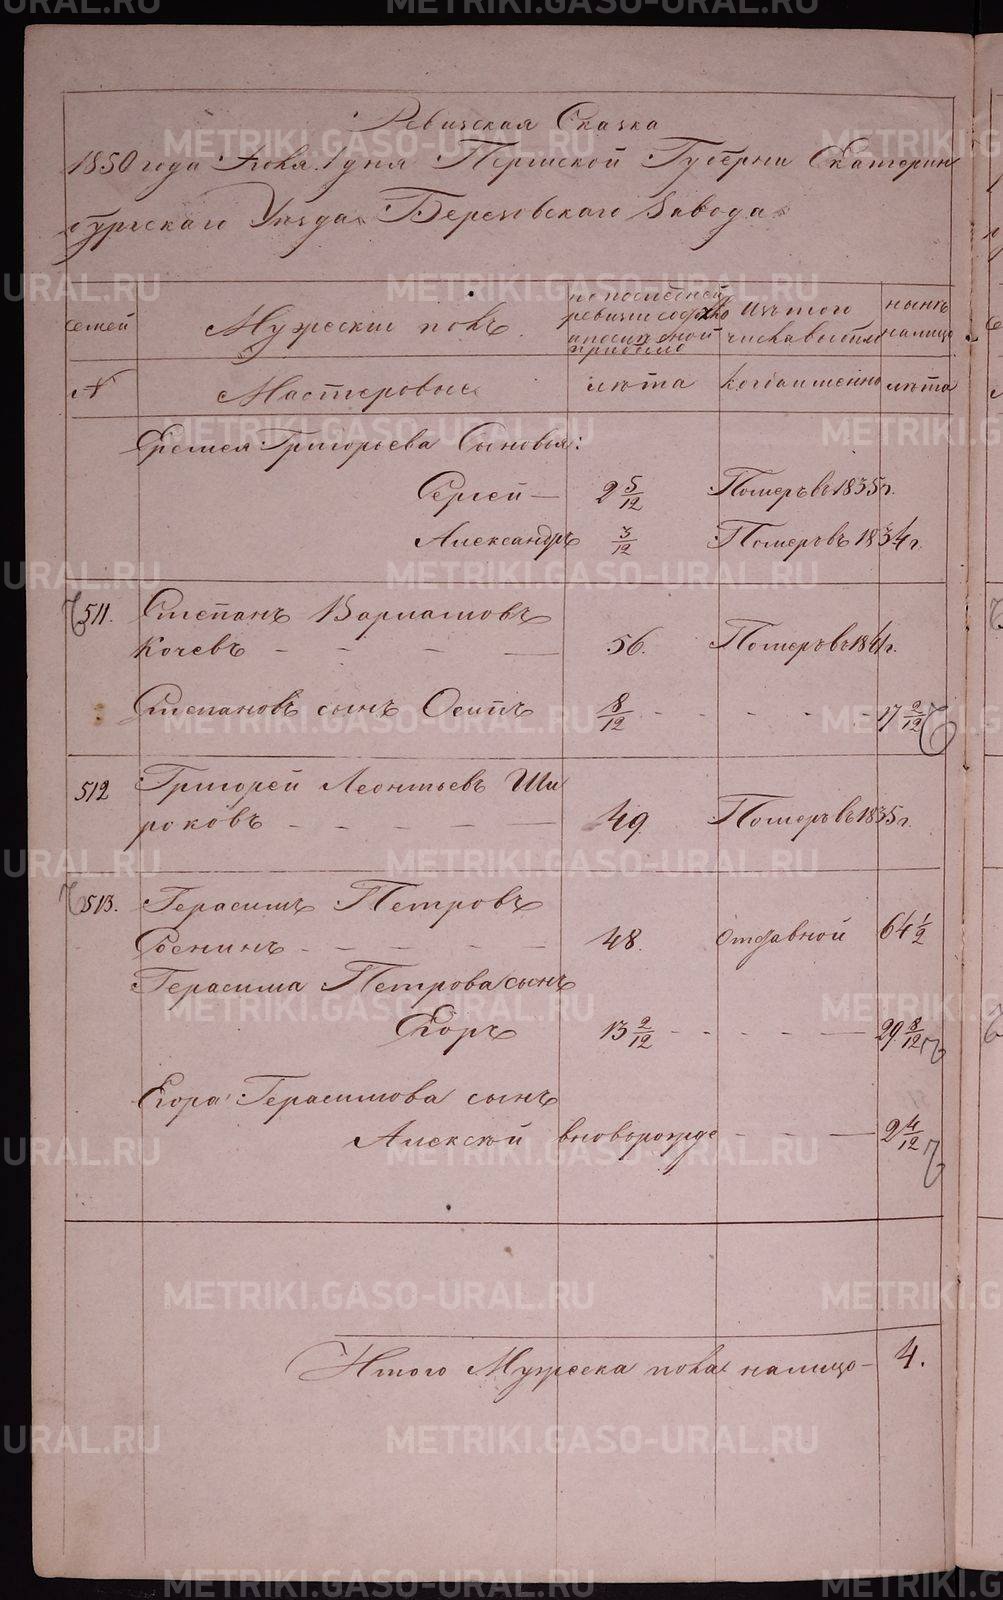 Ревизская Сказка
1850 года Июля 1 дня Пермской Губерни Екатерин
бургскаго Уезда Березовскаго Завода
семей
Мужеский полъ
по последней ревизии состояло и после оной прибыло
Изъ того числа выбыло
ныне налицо
№
Мастеровые
лета
когда именно
лета
Еремея Григорьева Сыновья:
Сергей — 2 5/12 Померъ въ 1835 г.
Александръ 3/12 Померъ въ 1834 г.
511. Степанъ Варламовъ
Кочевъ - - - - — 56. Померъ въ 1841 г.
Степановъ сынъ Осипъ 8/12 - - - - - 17 2/12
512 Григорей Леонтьевъ Ши
роковъ - - - - — 49. Померъ въ 1835 г.
513. Герасимъ Петровъ
Сенинъ - - - - - 48. Отставной 64 1/2
Герасима Петрова сынъ
Егоръ 13 2/12 - - - - — 29 8/12
Егора Герасимова сынъ
Алексей вноворожде - - - — 2 4/12
Итого Мужеска пола налицо - 4.
METRIKI.GASO-URAL.RU